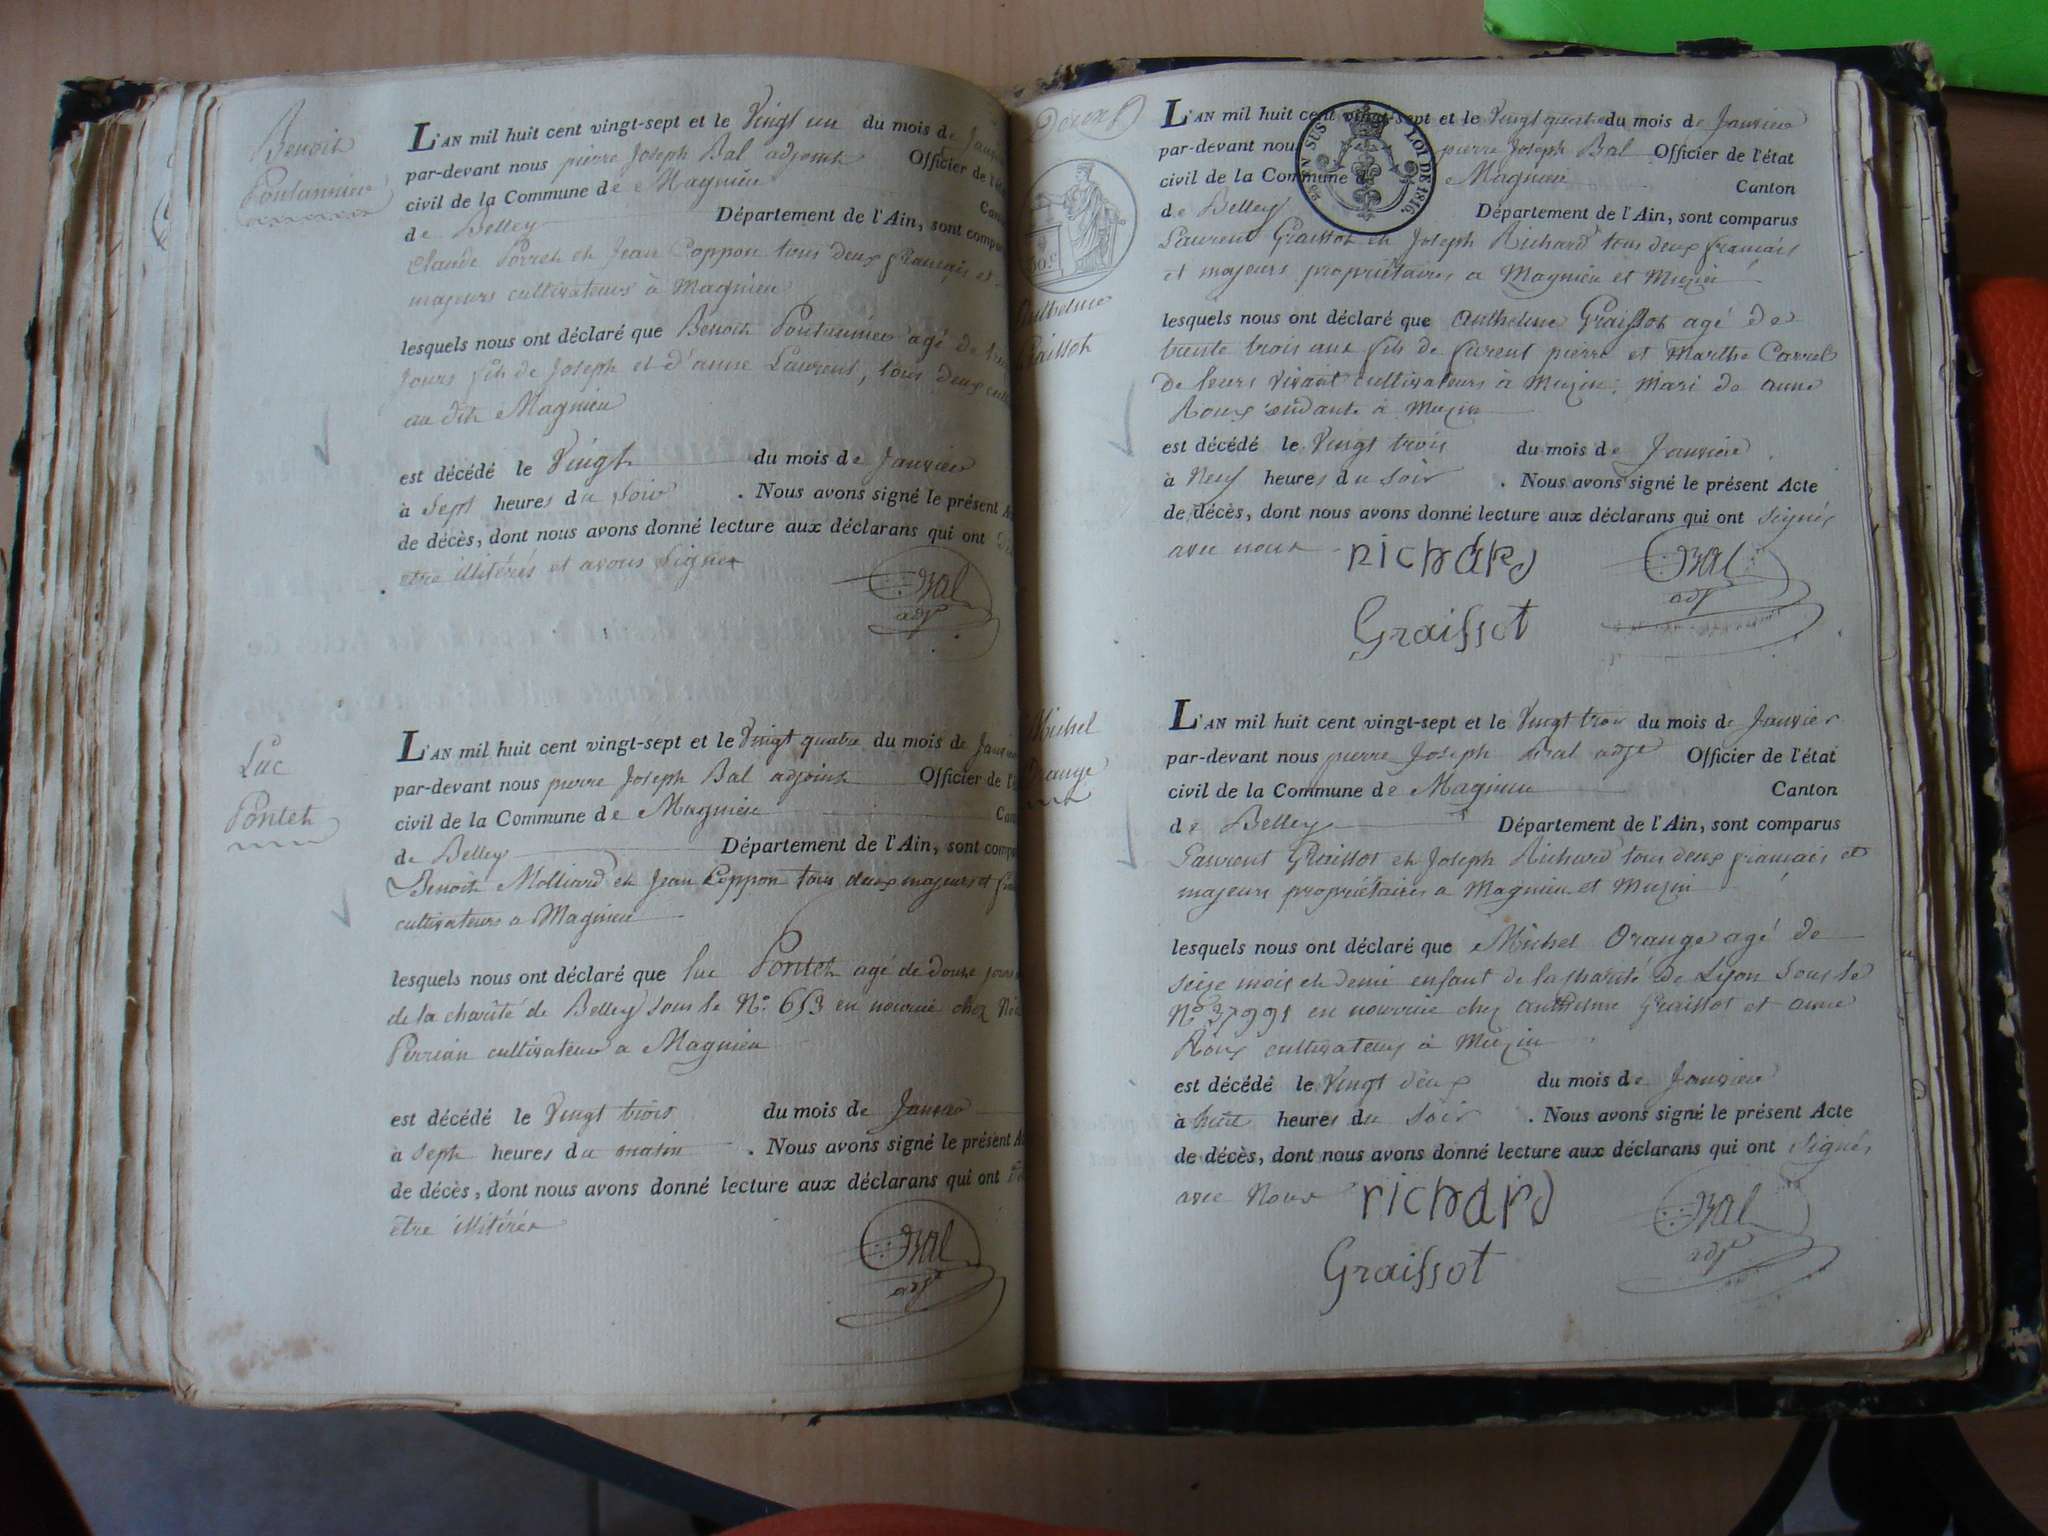 Benoit
L'AN mil huit cent vingt-sept et le Vingt un du mois de Janvier
par-devant nous pierre Joseph Bal adjoint Officier de l'état
civil de la Commune de Magnieu
de Belley Département de l'Ain, sont comparus
Claude Perret et Jean Coppon tous deux français et
majeurs cultivateurs à Magnieu
lesquels nous ont déclaré que Benoit agé de
Jours fils de Joseph et d'anne Laurent, tous deux
au dit Magnieu
est décédé le Vingt du mois de Janvier
à Sept heures du Soir . Nous avons signé le présent
de décès, dont nous avons donné lecture aux déclarans qui ont
etre illitérés et avons Signer
Bal
adjt
Luc
Pontet
L'AN mil huit cent vingt-sept et le Vingt quatre du mois de Janvier
par-devant nous pierre Joseph Bal adjoint Officier de
civil de la Commune de Magnieu
de Belley Département de l'Ain, sont
Benoit Molliard et Jean Coppon tous deux majeurs et
cultivateurs a Magnieu
lesquels nous ont déclaré que luc Pontet agé de douze jours
de la charité de Belley sous le N° 653 en nourrice chez
Perrian cultivateur a Magnieu
est décédé le Vingt trois du mois de Janvier
à Sept heures du matin . Nous avons signé le présent
de décès, dont nous avons donné lecture aux déclarans qui ont
être illitérés
Bal
adjt
50.c
Anthelme
Graissot
L'AN mil huit cent vingt-sept et le Vingt quatre du mois de Janvier
par-devant nous pierre Joseph Bal Officier de l'état
civil de la Commune de Magnieu Canton
de Belley Département de l'Ain, sont comparus
EN SUS LOI DE 1816.
Laurent Graissot et Joseph Richard tous deux français
et majeurs propriétaires a Magnieu et Muzin
lesquels nous ont déclaré que Anthelme Graissot agé de
trente trois ans fils de furent pierre et Marthe Carrel
De leurs vivant cultivateurs à Muzin: Mari de anne
Roux à Muzin
est décédé le Vingt trois du mois de Janvier
à Neuf heures du Soir . Nous avons signé le présent Acte
de décès, dont nous avons donné lecture aux déclarans qui ont Signés
avec nous
richard
Bal
adjt
Graissot
Michel
Orange
L'AN mil huit cent vingt-sept et le Vingt trois du mois de Janvier
par-devant nous pierre Joseph Bal adjt Officier de l'état
civil de la Commune de Magnieu Canton
de Belley Département de l'Ain, sont comparus
Laurent Graissot et Joseph Richard tous deux français et
majeurs propriétaires a Magnieu et Muzin
lesquels nous ont déclaré que Michel Orange agé de
seize mois et demi enfant de la charité de Lyon Sous le
N° 37991 en nourrice chez anthelme Graissot et anne
Roux cultivateurs à Muzin
est décédé le Vingt deux du mois de Janvier
à huit heures du Soir . Nous avons signé le présent Acte
de décès, dont nous avons donné lecture aux déclarans qui ont Signés
avec Nous
richard
Bal
adjt
Graissot